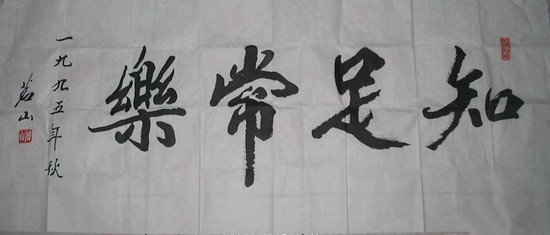 知足常樂
一九九五年秋
茗山